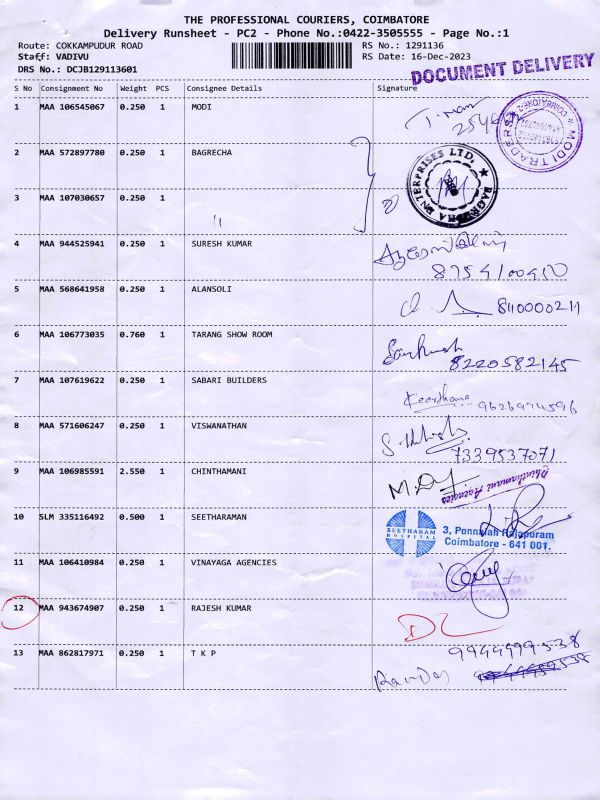 THE PROFESSIONAL COURIERS, COIMBATORE
Delivery Runsheet - PC2 - Phone No.:0422-3505555 - Page No.:1
Route: COKKAMPUDUR ROAD RS No.: 1291136
Staff: VADIVU RS Date: 16-Dec-2023
DRS No.: DCJB129113601
DOCUMENT DELIVERY
S No Consignment No Weight PCS Consignee Details Signature
1 MAA 106545067 0.250 1 MODI
MODI TRADERS
2 MAA 572897780 0.250 1 BAGRECHA
BAGRECHA ENTERPRISES LTD.
3 MAA 107030657 0.250 1 "
4 MAA 944525941 0.250 1 SURESH KUMAR
8754100450
5 MAA 568641958 0.250 1 ALANSOLI
8110000211
6 MAA 106773035 0.760 1 TARANG SHOW ROOM
8220582145
7 MAA 107619622 0.250 1 SABARI BUILDERS
Keerthana 9626974596
8 MAA 571606247 0.250 1 VISWANATHAN
7339537071
9 MAA 106985591 2.550 1 CHINTHAMANI
Chinthamani Agencies
10 SLM 335116492 0.500 1 SEETHARAMAN
SEETHARAM HOSPITAL
3, Ponnaiah Rajapuram
Coimbatore - 641 001.
11 MAA 106410984 0.250 1 VINAYAGA AGENCIES
12 MAA 943674907 0.250 1 RAJESH KUMAR
DL
13 MAA 862817971 0.250 1 T K P
9944999538